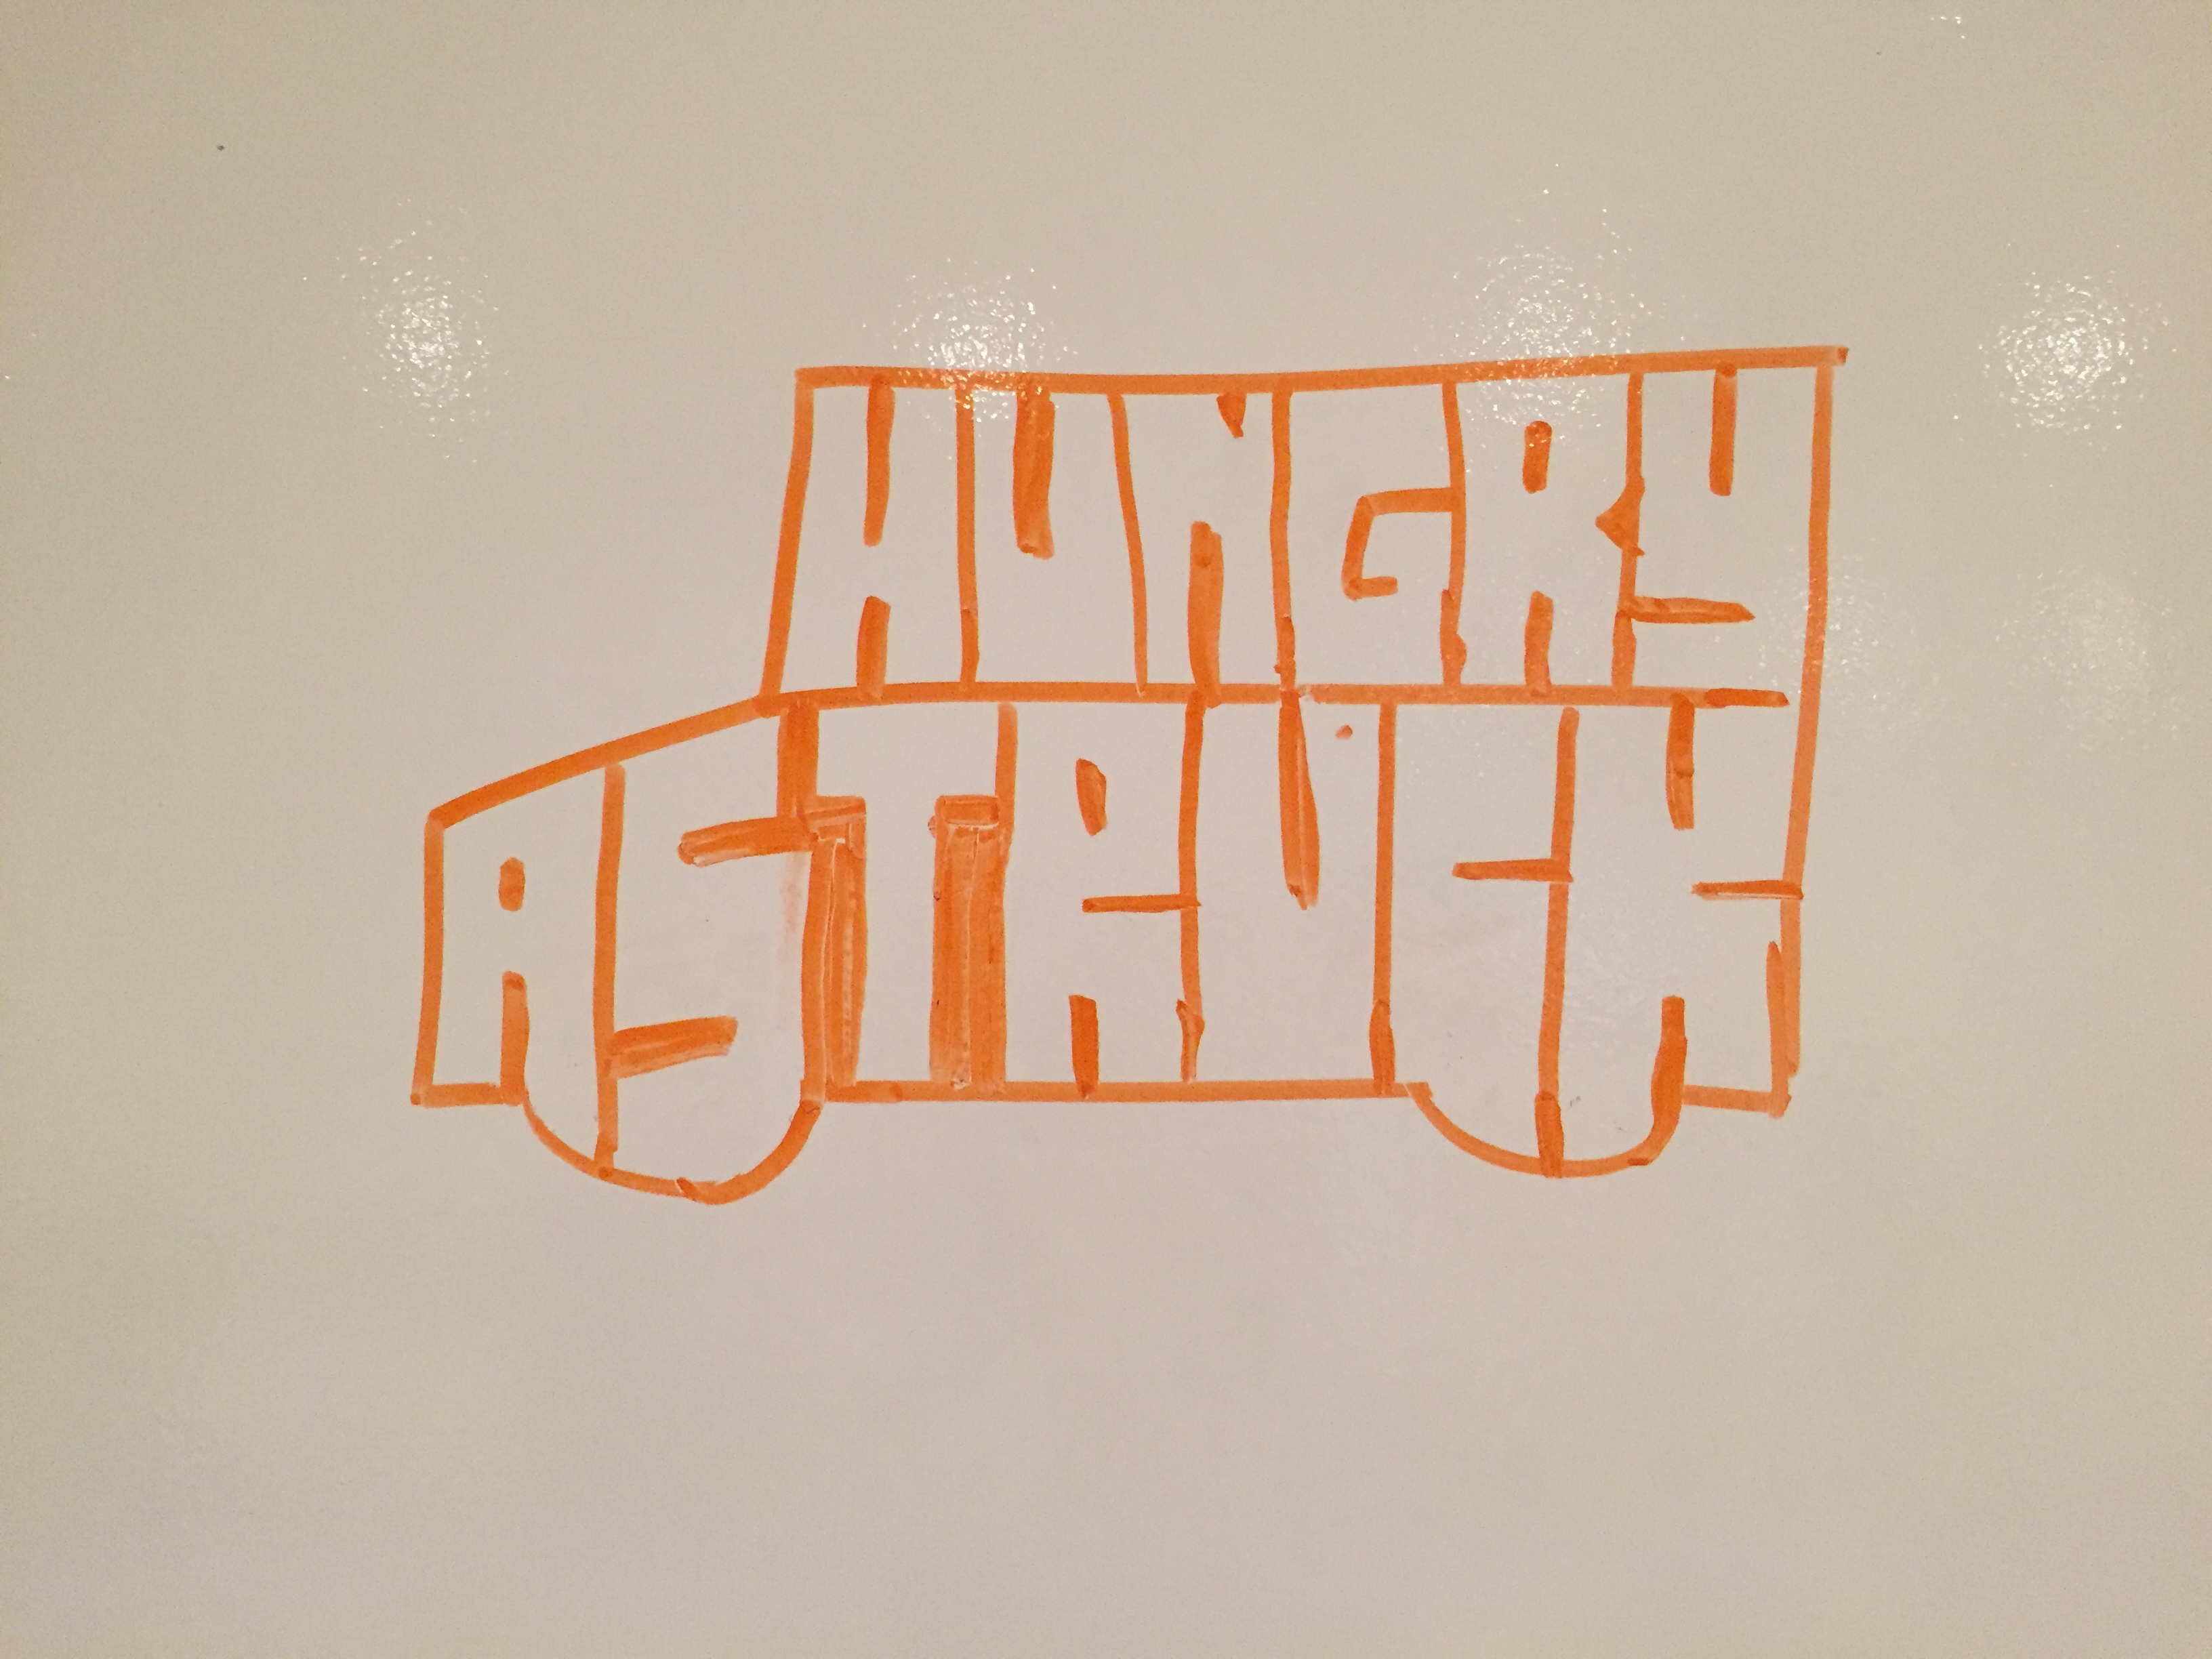 HUNGRY
ASTRUCK